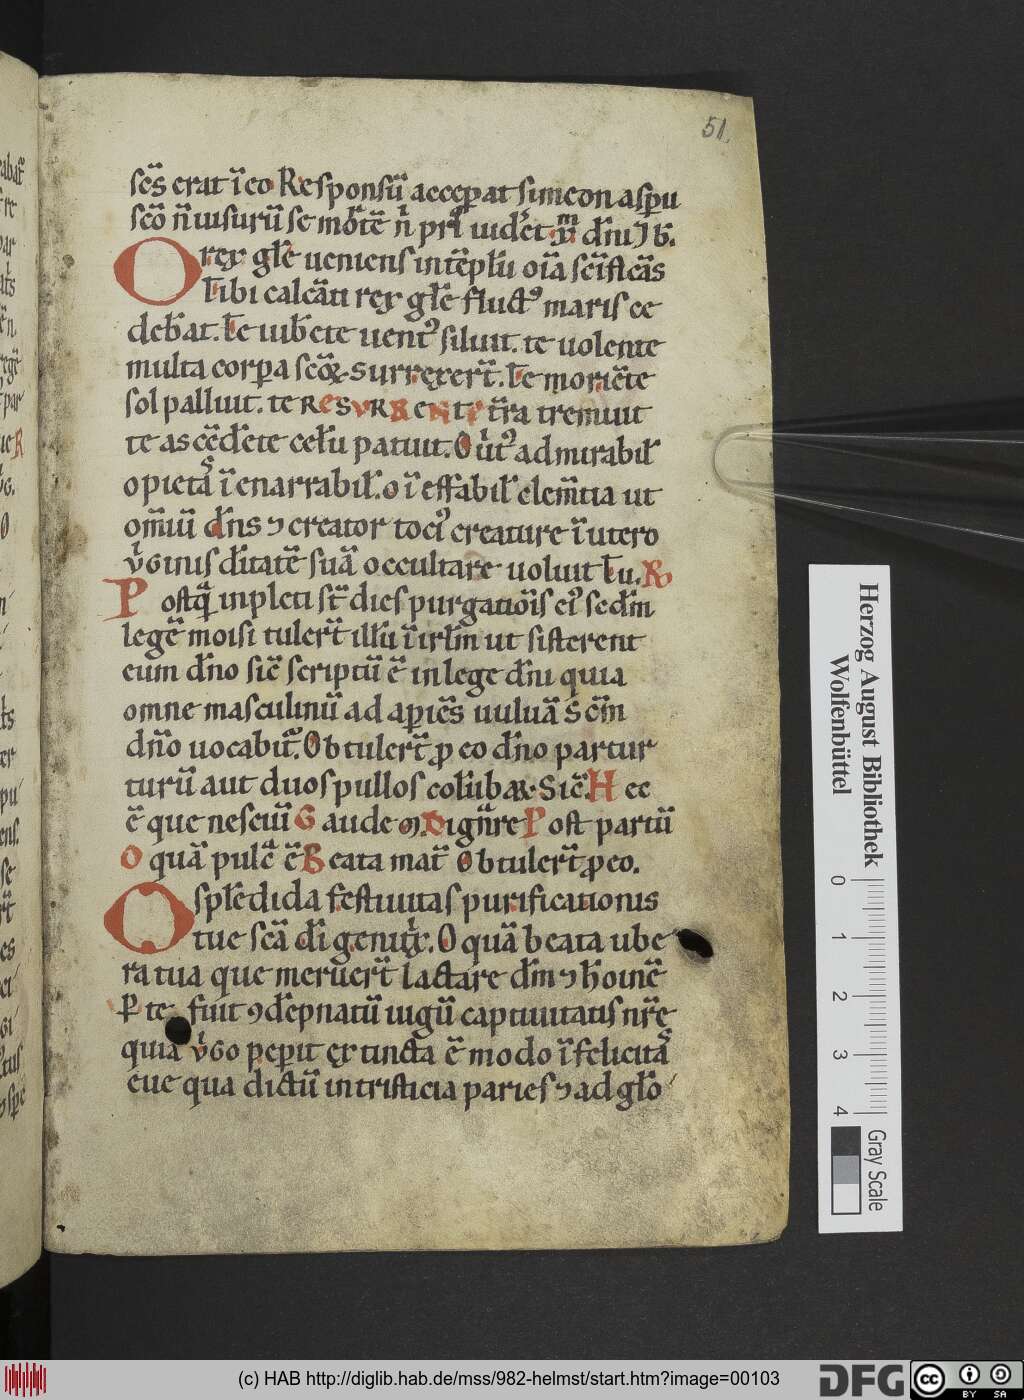 51.
scs̄ erat ī eo Responsū acceperat simeon a spu
scō n̄ uisurū se mortē n̄ pri uidet dn̄i
O rex glē ueniens in tēplū oīa scīficās
Tibi calcāti rex glē fluctꝰ maris ce
debat. te iubēte uentꝰ siluit. te uolente
multa corpa scōꝝ surrexert̄. te moriēte
sol palluit. te ResvRgente t̄ra tremuit
te ascēdēte celū patuit. O ūtꝰ admirabil̄
o pietas ī enarrabil̄. o ī effabil̄ clem̄tia ut
om̄iū dn̄s ⁊ creator tociꝰ creature ī utero
v̄ginis d̄itatē suā occultare uoluit
Postq̄ inpleti st̄ dies purgatiōis eiꝰ secd̄m
legē moisi tulert̄ illū ī irl̄m ut sisterent
eum dn̄o sic̄ scriptū ē in lege dn̄i quia
omne masculinū adapiēs uuluā sc̄m
dn̄o uocabit̄. Obtulert̄ ꝓ eo dn̄o partur
turū aut duos pullos colūbaꝝ. Sic̄. Hec
ē que nesciuī Gaude Dign̄re Post partū
O quā pulc̄ ē Beata mat̄ Obtulert̄ ꝓ eo.
O splēdida festiuitas purificationis
tue scā di genitx̄. O quā beata ube
ra tua que meruert̄ lactare d̄m ⁊ hōinē
P te fuit ꝯdēpnatū iugū captiuitatis nr̄ę
quia v̄go peperit extincta ē modo īfelicitas
eue qua dictū in tristicia paries ⁊ ad glō
Herzog August Bibliothek
Wolfenbüttel
0 1 2 3 4
Gray Scale
(c) HAB http://diglib.hab.de/mss/982-helmst/start.htm?image=00103
DFG
cc BY SA